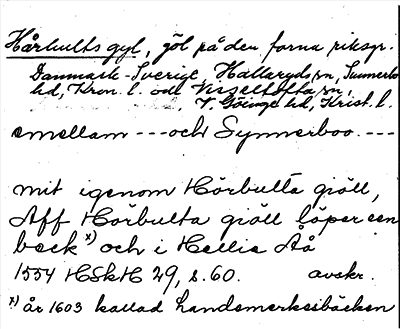 Hårbults gyl, göl på den forna riksgr.
Danmark-Sverige, Hallaryds sn, Sunnerbo
hd, Kron. l. och Visseltofta sn,
V. Göinge hd, Krist. l.
emellam --- och Synnerboo. ---
mit igenom Hörbulta giöll,
Aff Hörbulta giöll löper een
beck x) och i Hellie Åå
1554 HSkH 29, s. 60. avskr.
x) år 1603 kallad handsmerkesbäcken